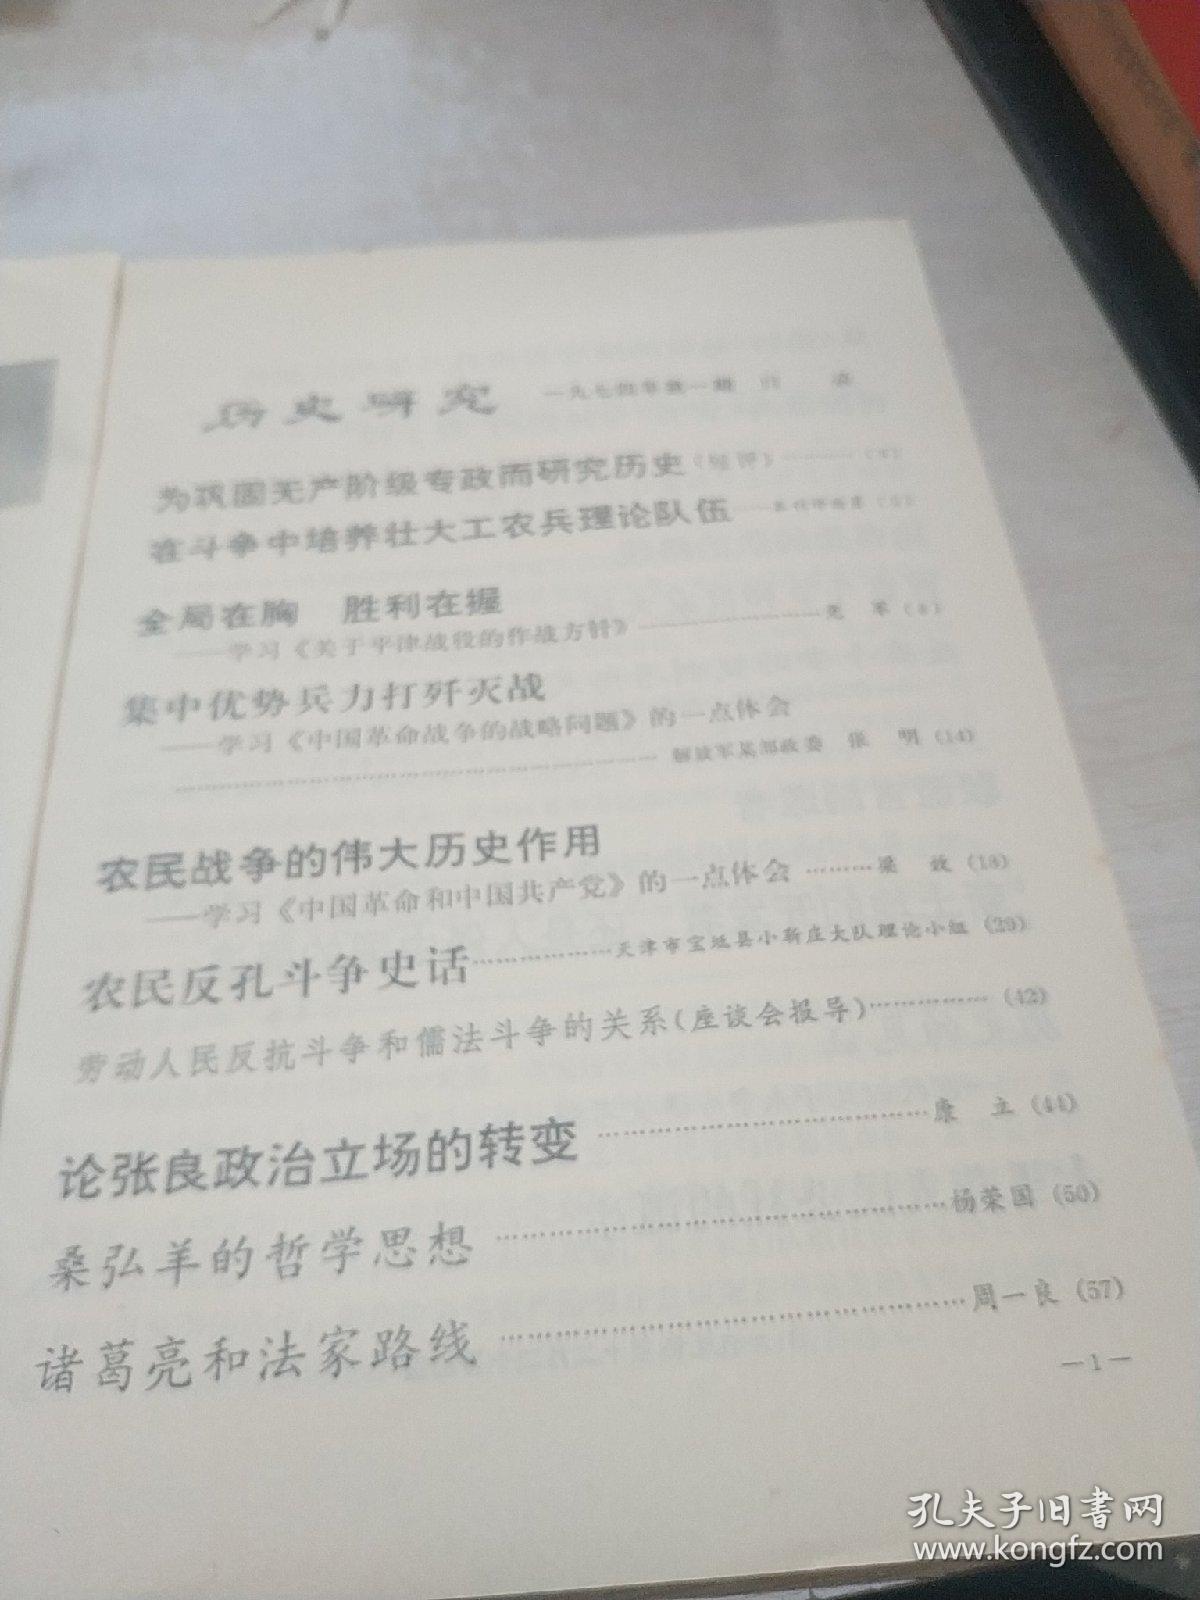 历史研究 一九七四年第一期 目 录
为巩固无产阶级专政而研究历史（短评）
在斗争中培养壮大工农兵理论队伍
全局在胸 胜利在握
——学习《关于平津战役的作战方针》
集中优势兵力打歼灭战
——学习《中国革命战争的战略问题》的一点体会
解放军某部政委 张 明（14）
农民战争的伟大历史作用
——学习《中国革命和中国共产党》的一点体会 ………梁 效（18）
农民反孔斗争史话………………天津市宝坻县小靳庄大队理论小组（29）
劳动人民反抗斗争和儒法斗争的关系（座谈会报导）……………（42）
论张良政治立场的转变………………………………康 立（44）
桑弘羊的哲学思想………………………………………杨荣国（50）
诸葛亮和法家路线………………………………………周一良（57）
—1—
孔夫子旧书网
www.kongfz.com